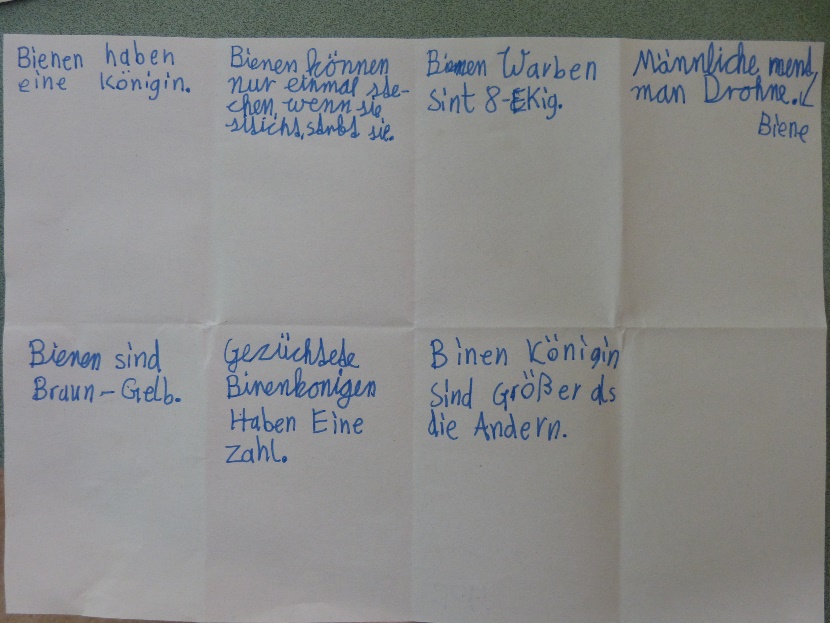 Bienen haben
eine Königin.
Bienen können
nur einmal ste-
chen, wenn sie
stticht, stirbt sie.
Bienen Warben
Sint 8-EKig.
Männliche nennt
man Drohne.
Biene
Bienen sind
Braun-Gelb.
Gezüchtete
Binenkonigen
Haben Eine
Zahl.
Binen Königin
Sind Größer als
die Andern.